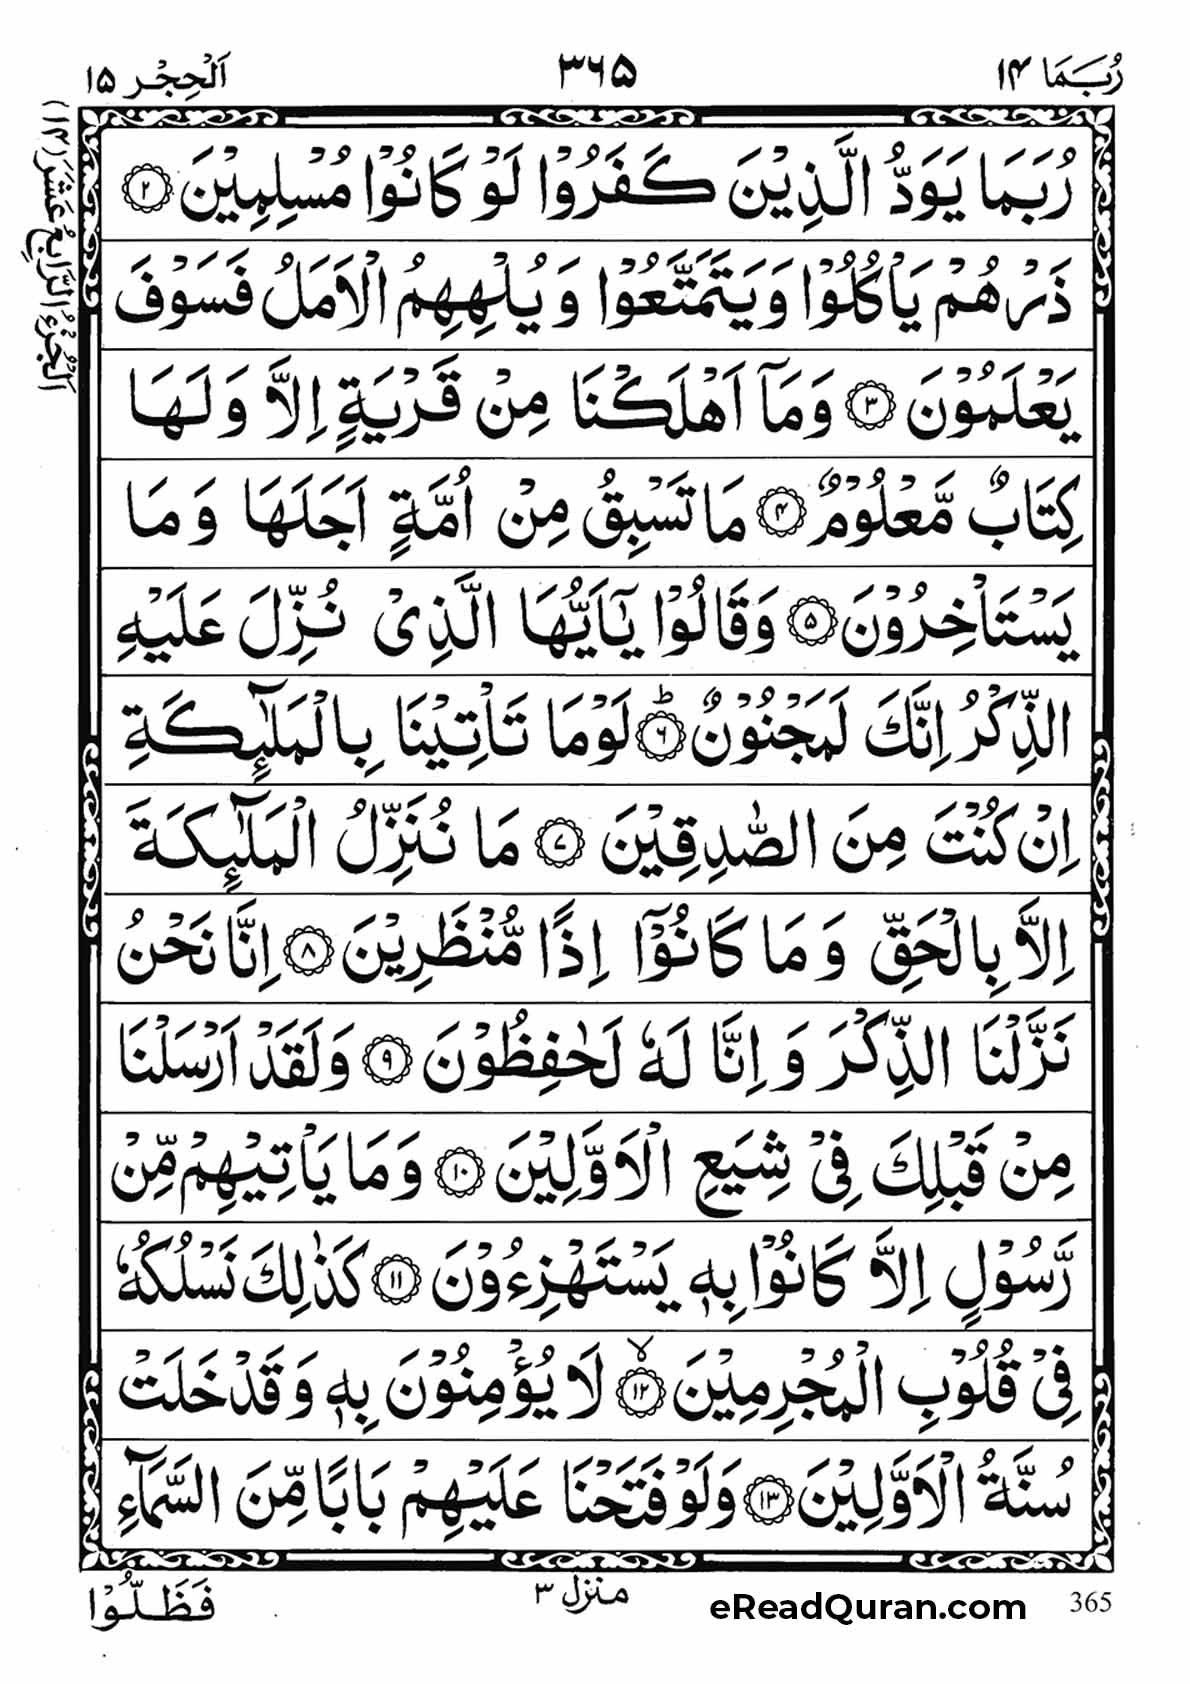 رُبَمَا ۱۴
۳۶۵
اَلْحِجْر ۱۵
اَلْجُزْءُ الرَّابِعُ عَشَرَ (۱۴)
رُبَمَا يَوَدُّ الَّذِيْنَ كَفَرُوْا لَوْ كَانُوْا مُسْلِمِيْنَ ۲
ذَرْهُمْ يَاْكُلُوْا وَيَتَمَتَّعُوْا وَيُلْهِهِمُ الْاَمَلُ فَسَوْفَ
يَعْلَمُوْنَ ۳ وَمَآ اَهْلَكْنَا مِنْ قَرْيَةٍ اِلَّا وَلَهَا
كِتَابٌ مَّعْلُوْمٌ ۴ مَا تَسْبِقُ مِنْ اُمَّةٍ اَجَلَهَا وَمَا
يَسْتَاْخِرُوْنَ ۵ وَقَالُوْا يٰٓاَيُّهَا الَّذِىْ نُزِّلَ عَلَيْهِ
الذِّكْرُ اِنَّكَ لَمَجْنُوْنٌ ۶ؕ لَوْمَا تَاْتِيْنَا بِالْمَلٰٓئِكَةِ
اِنْ كُنْتَ مِنَ الصّٰدِقِيْنَ ۷ مَا نُنَزِّلُ الْمَلٰٓئِكَةَ
اِلَّا بِالْحَقِّ وَمَا كَانُوْٓا اِذًا مُّنْظَرِيْنَ ۸ اِنَّا نَحْنُ
نَزَّلْنَا الذِّكْرَ وَاِنَّا لَهٗ لَحٰفِظُوْنَ ۹ وَلَقَدْ اَرْسَلْنَا
مِنْ قَبْلِكَ فِىْ شِيَعِ الْاَوَّلِيْنَ ۱۰ وَمَا يَاْتِيْهِمْ مِّنْ
رَّسُوْلٍ اِلَّا كَانُوْا بِهٖ يَسْتَهْزِءُوْنَ ۱۱ كَذٰلِكَ نَسْلُكُهٗ
فِىْ قُلُوْبِ الْمُجْرِمِيْنَ ۱۲ۙ لَا يُؤْمِنُوْنَ بِهٖ وَقَدْ خَلَتْ
سُنَّةُ الْاَوَّلِيْنَ ۱۳ وَلَوْ فَتَحْنَا عَلَيْهِمْ بَابًا مِّنَ السَّمَآءِ
فَظَلُّوْا
منزل ۳
eReadQuran.com
365